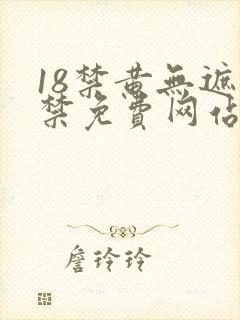 18禁黄無遮
禁免費网佔
詹玲玲